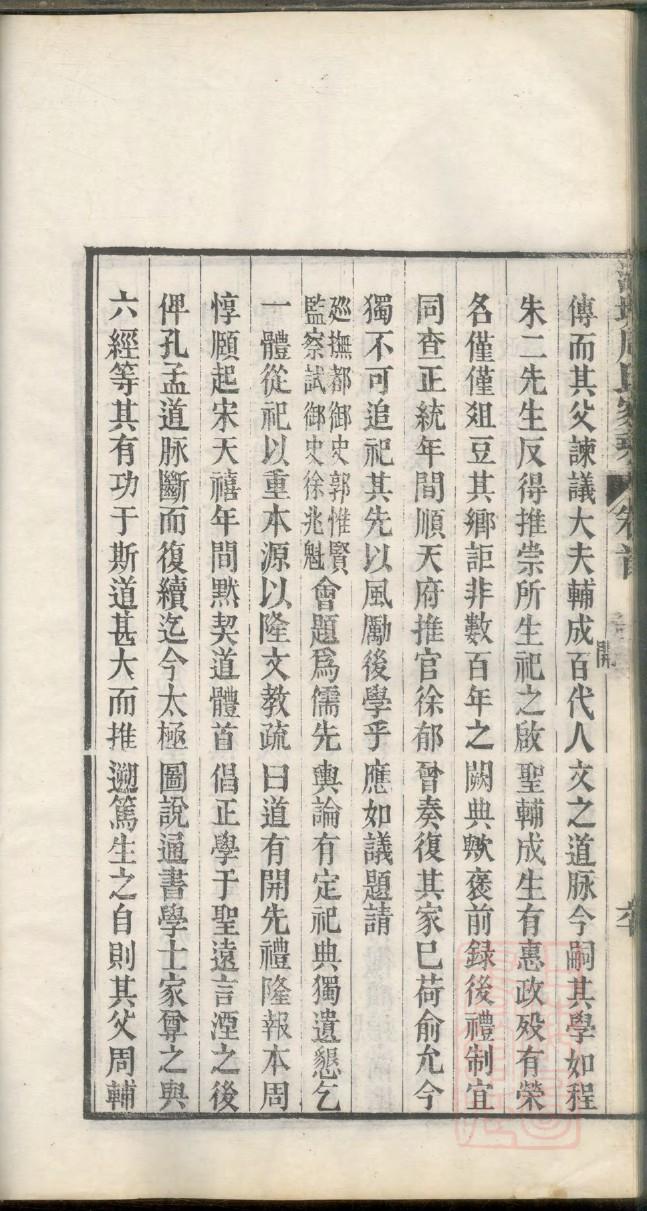 周氏家乘
卷首
開
傳而其父諫議大夫輔成百代人文之道脉今嗣其學如程
朱二先生反得推崇所生祀之啟聖輔成生有惠政殁有榮
名僅僅爼豆其鄉詎非數百年之闕典歟褒前録後禮制宜
同查正統年間順天府推官徐郁曾奏復其家已荷俞允今
獨不可追祀其先以風勵後學乎應如議題請
廵撫都御史郭惟賢
監察試御史徐兆魁
會題爲儒先輿論有定祀典獨遺懇乞
一體從祀以重本源以隆文教疏曰道有開先禮隆報本周
惇頤起宋天禧年間黙契道體首倡正學于聖遠言湮之後
俾孔孟道脉斷而復續迄今太極圖說通書學士家尊之與
六經等其有功于斯道甚大而推遡篤生之自則其父周輔